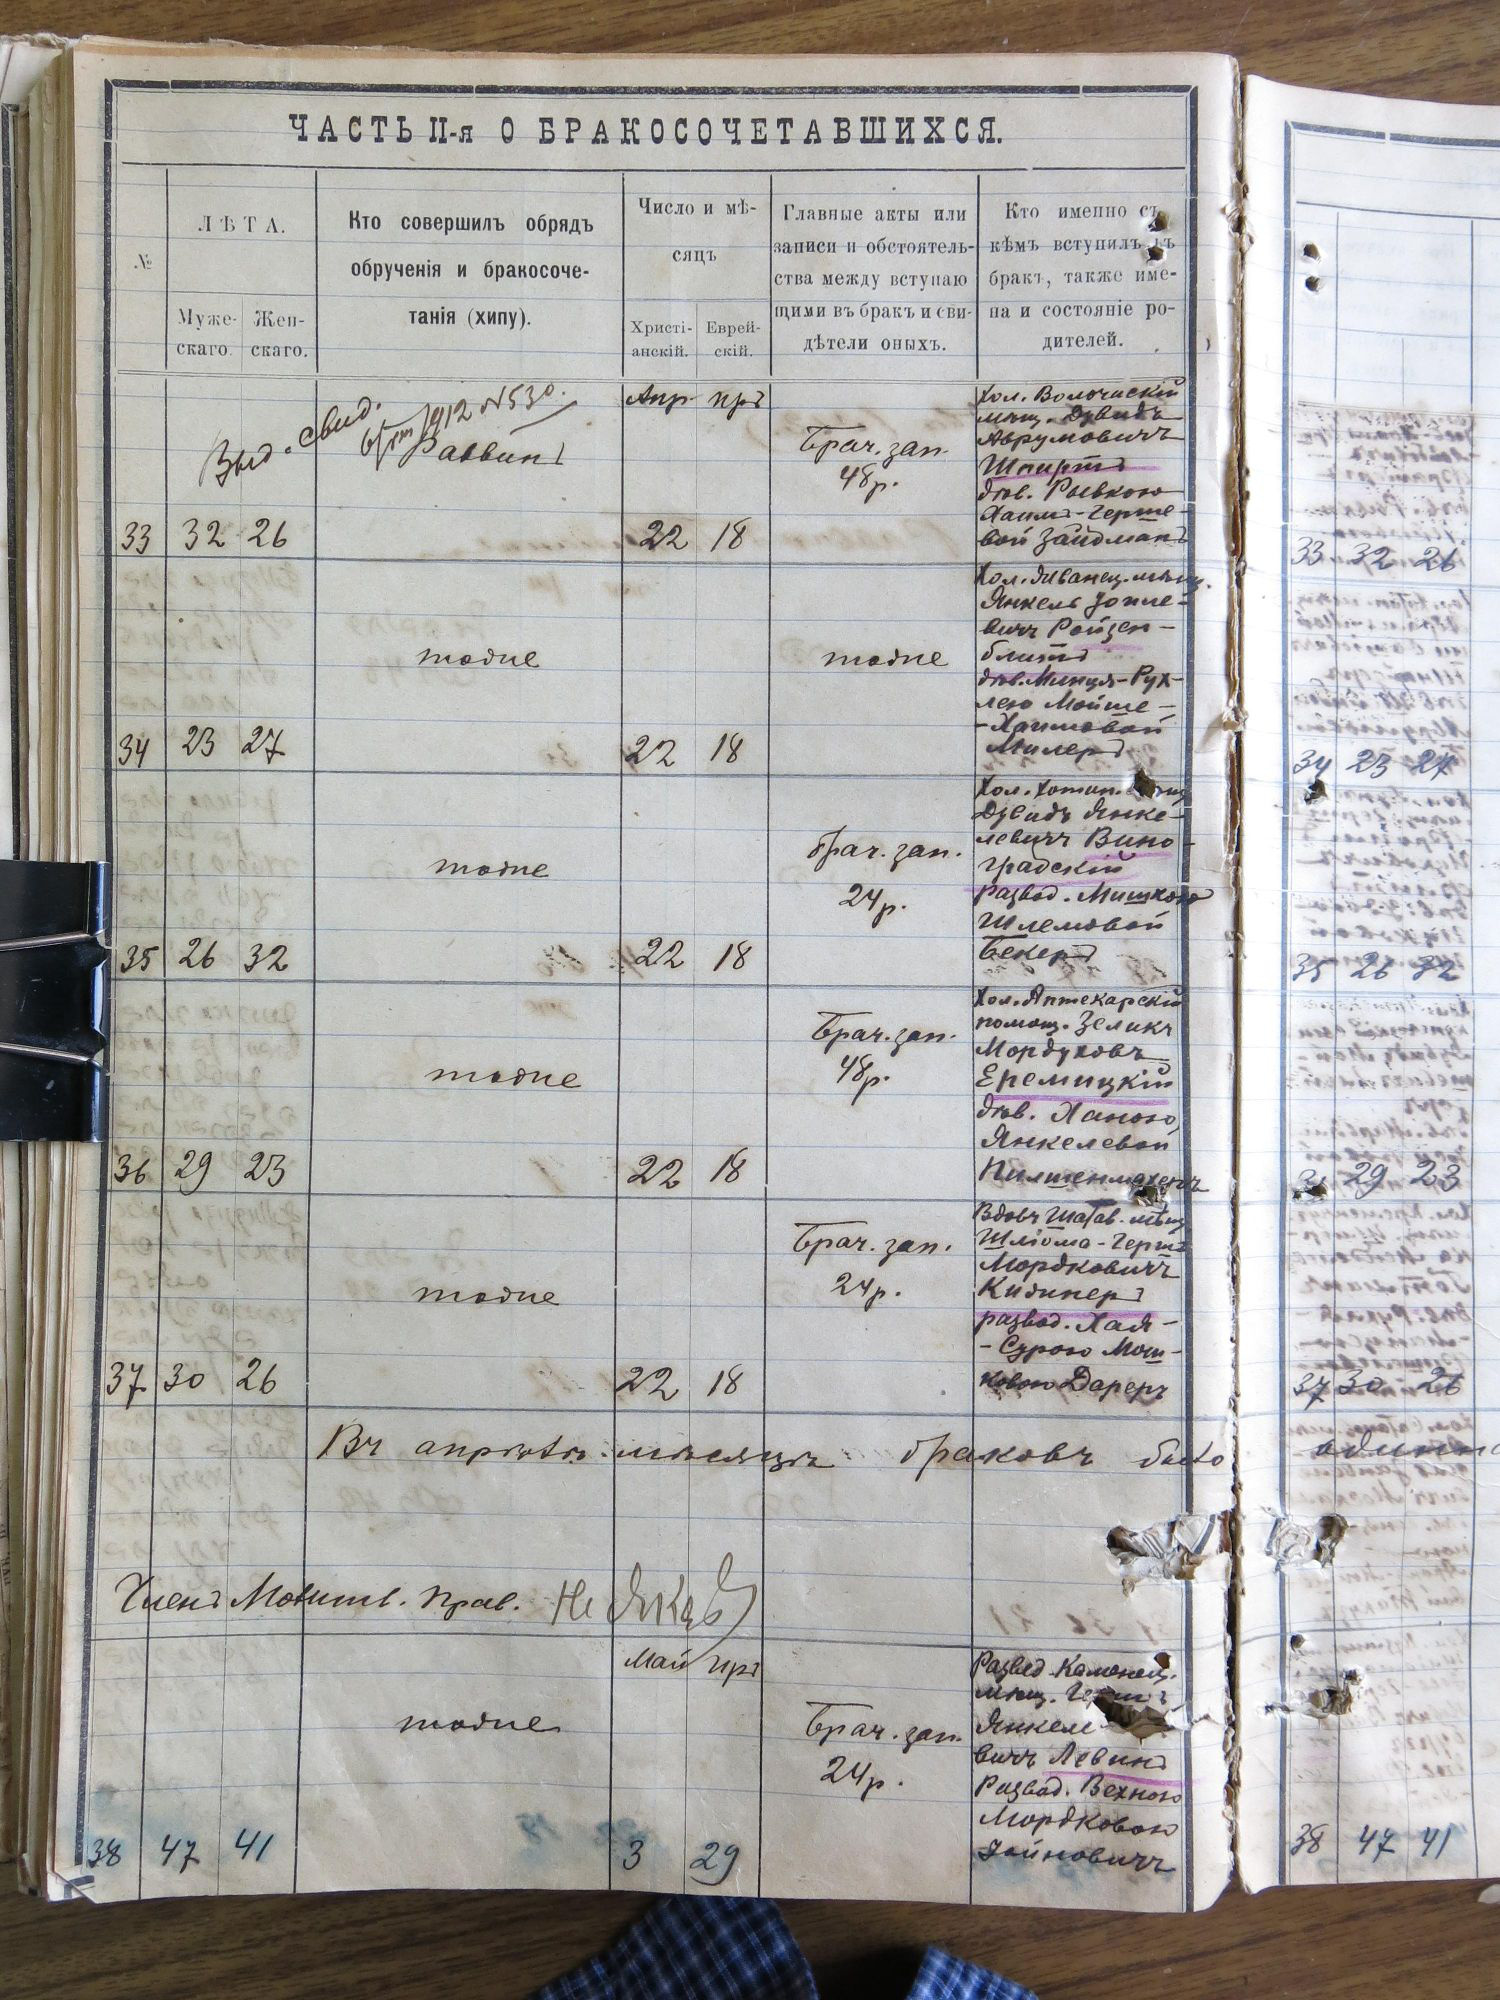 ЧАСТЬ II-я О БРАКОСОЧЕТАВШИХСЯ.
№
ЛѢТА.
Муже-
скаго.
Жен-
скаго.
Кто совершилъ обрядъ
обрученія и бракосоче-
танія (хипу).
Число и мѣ-
сяцъ
Христі-
анскій.
Еврей-
скій.
Главные акты или
записи и обстоятель-
ства между вступаю
щими въ бракъ и сви-
дѣтели оныхъ.
Кто именно съ
кѣмъ вступилъ въ
бракъ, также име-
на и состояніе ро-
дителей.
Выд. свид.
1912 №530.
Раввинъ
Апр
Брач. зап.
48 р.
Хол. Волочискій
мѣщ. Дувидъ
Аврумовичъ
Шпиртъ
дѣв. Рывкою
Хаимъ-Герше-
вой Зайдманъ
33 32 26 22 18
тоже
тоже
Хол. Жванец. мѣщ.
Янкель
вичъ Ройзен-
блитъ
дѣв. Минця-Рух-
лею Мойше-
-Хаимовой
Милеръ
34 23 27 22 18
тоже
Брач. зап.
24 р.
Хол. Хотин.
Дувидъ Янке-
левичъ Вино-
градскій
развод. Мишкою
Шлемовой
Бекеръ
35 26 32 22 18
тоже
Брач. зап.
48 р.
Хол. Аптекарскій
помощ. Зеликъ
Мордуховъ
Еремицкій
дѣв. Ханою
Янкелевой
36 29 23 22 18
тоже
Брач. зап.
24 р.
Вдовъ Шатав. мѣщ.
Шліома-Гершъ
Мордковичъ
развод. Хая-
-Сурою Мош-
ковою Дареръ
37 30 26 22 18
Въ апрѣлѣ мѣсяцѣ браковъ было
Членъ Молитв. Прав.
Май
тоже
Брач. зап.
24 р.
Развед. Каменец.
мѣщ.
Янкеле-
вичъ Левинъ
Развод. Вехною
Мордковою
38 47 41 3 29
33 32 26
34 23 27
35 26 32
29 23
37 30 26
38 47 41